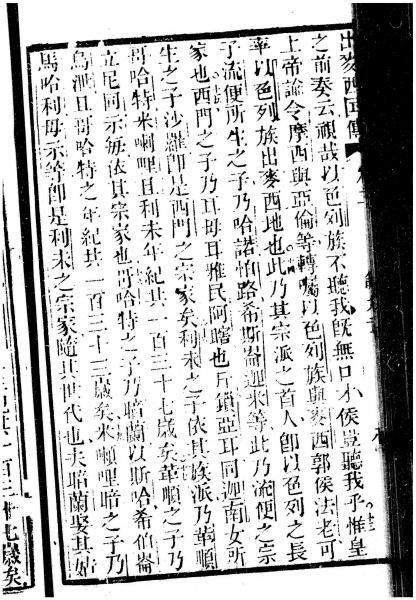 出麥西囯傳
之前奏云視哉以色列族不聽我旣無口才侯豈聽我乎十三惟皇
上帝諭令摩西與亞倫等轉囑以色列族與麥西郭侯法老可
率以色列族出麥西地也十四此乃其宗派之首人卽以色列之長
子流便所生之子乃哈諾怕路希斯崙迦米等此乃流便之宗
家也十五西門之子乃耳母耳雅民阿瞎也斤鎖亞耳同迦南女所
生之子沙羅卽是西門之宗家矣利未之子依其族派乃革順
哥哈特米喇哩且利未年紀共一百三十七歲矣革順之子乃
立尼同示每依其宗家也哥哈特之子乃暗蘭以斯哈希伯崙
烏泄且哥哈特之年紀共一百三十三歲矣米喇哩之子乃
馬哈利母示等卽是利未之宗家隨其世代也夫暗蘭娶其姑
一百三十七歲矣